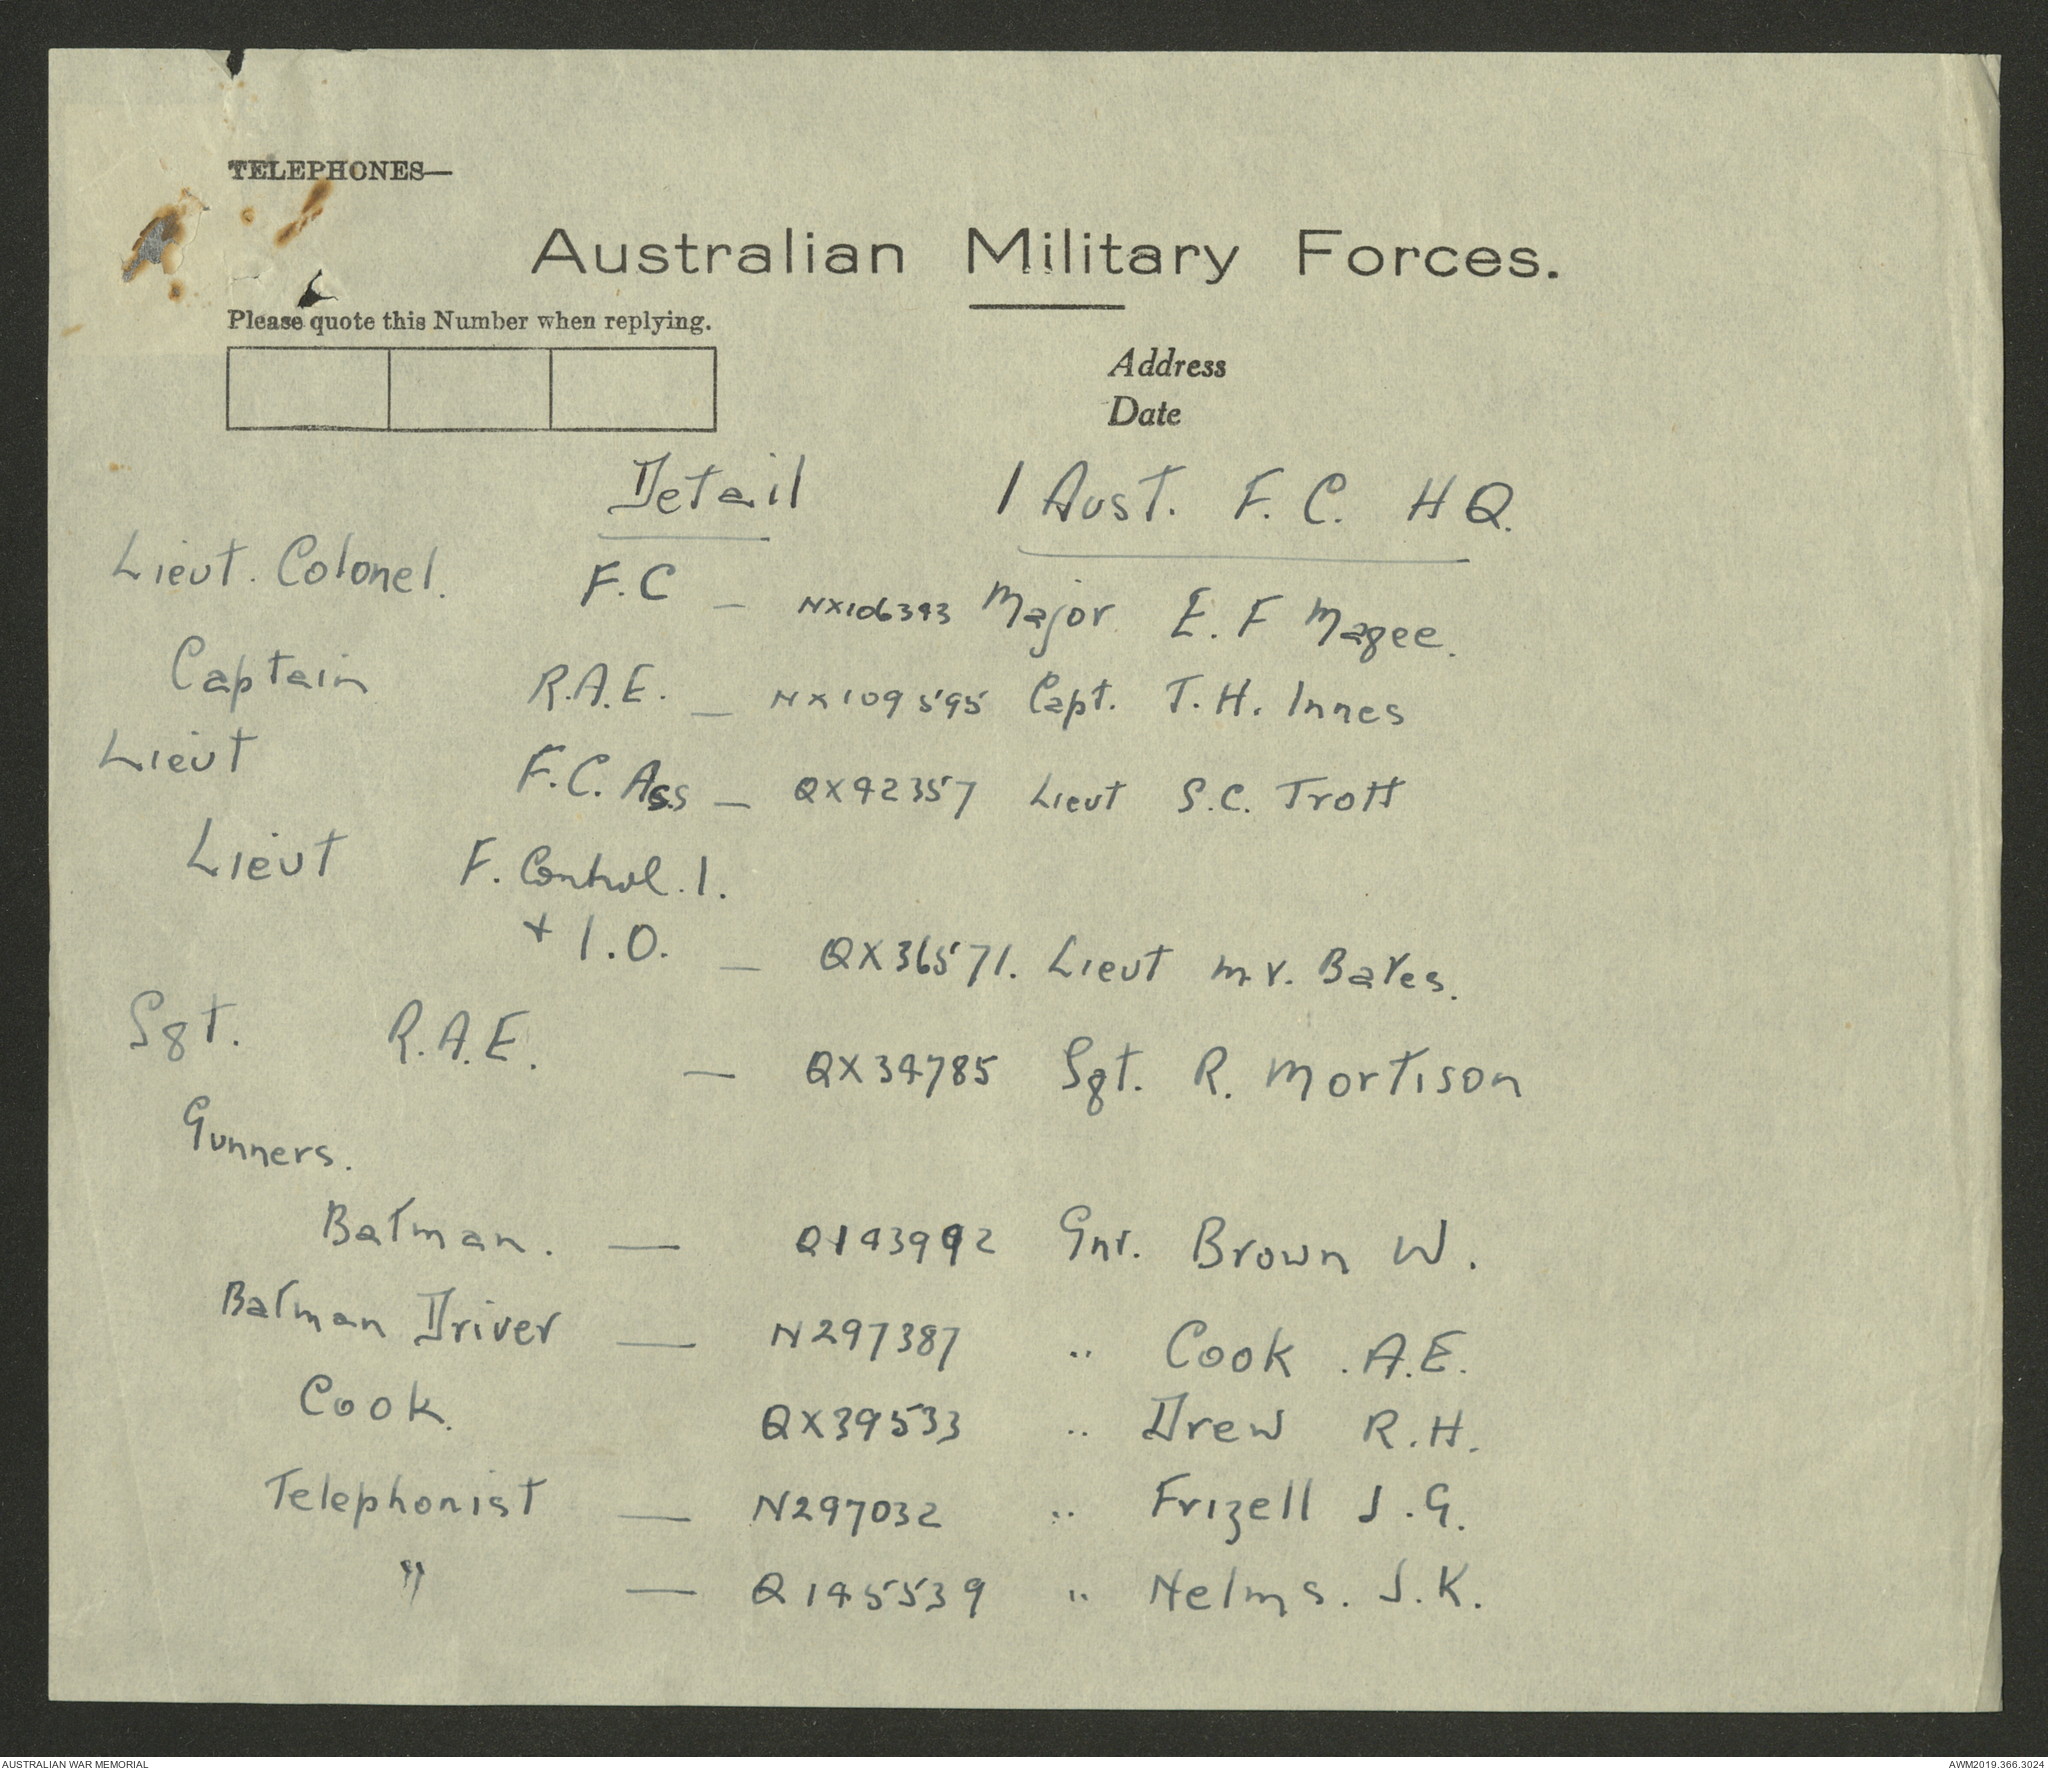 TELEPHONES—
Australian Military Forces.
Please quote this Number when replying.
Address
Date
Detail 1 Aust. F. C. HQ.
Lieut. Colonel. F.C — NX106343 Major E. F Magee.
Captain R.A.E. — NX109595 Capt. T. H. Innes
Lieut F.C. Ass — QX42357 Lieut S.C. Trott
Lieut F. Control. 1.
+ I.O. — QX36571. Lieut M.V. Bates.
Sgt. R.A.E. — QX34785 Sgt. R. Mortison
Gunners.
Batman. — Q143992 Gnr. Brown W.
Batman Driver — N297387 " Cook . A.E.
Cook. QX39533 " Drew R.H.
Telephonist — N297032 " Frizell J.G.
" — Q145539 " Nelms. J.K.
AUSTRALIAN WAR MEMORIAL AWM2019.366.3024